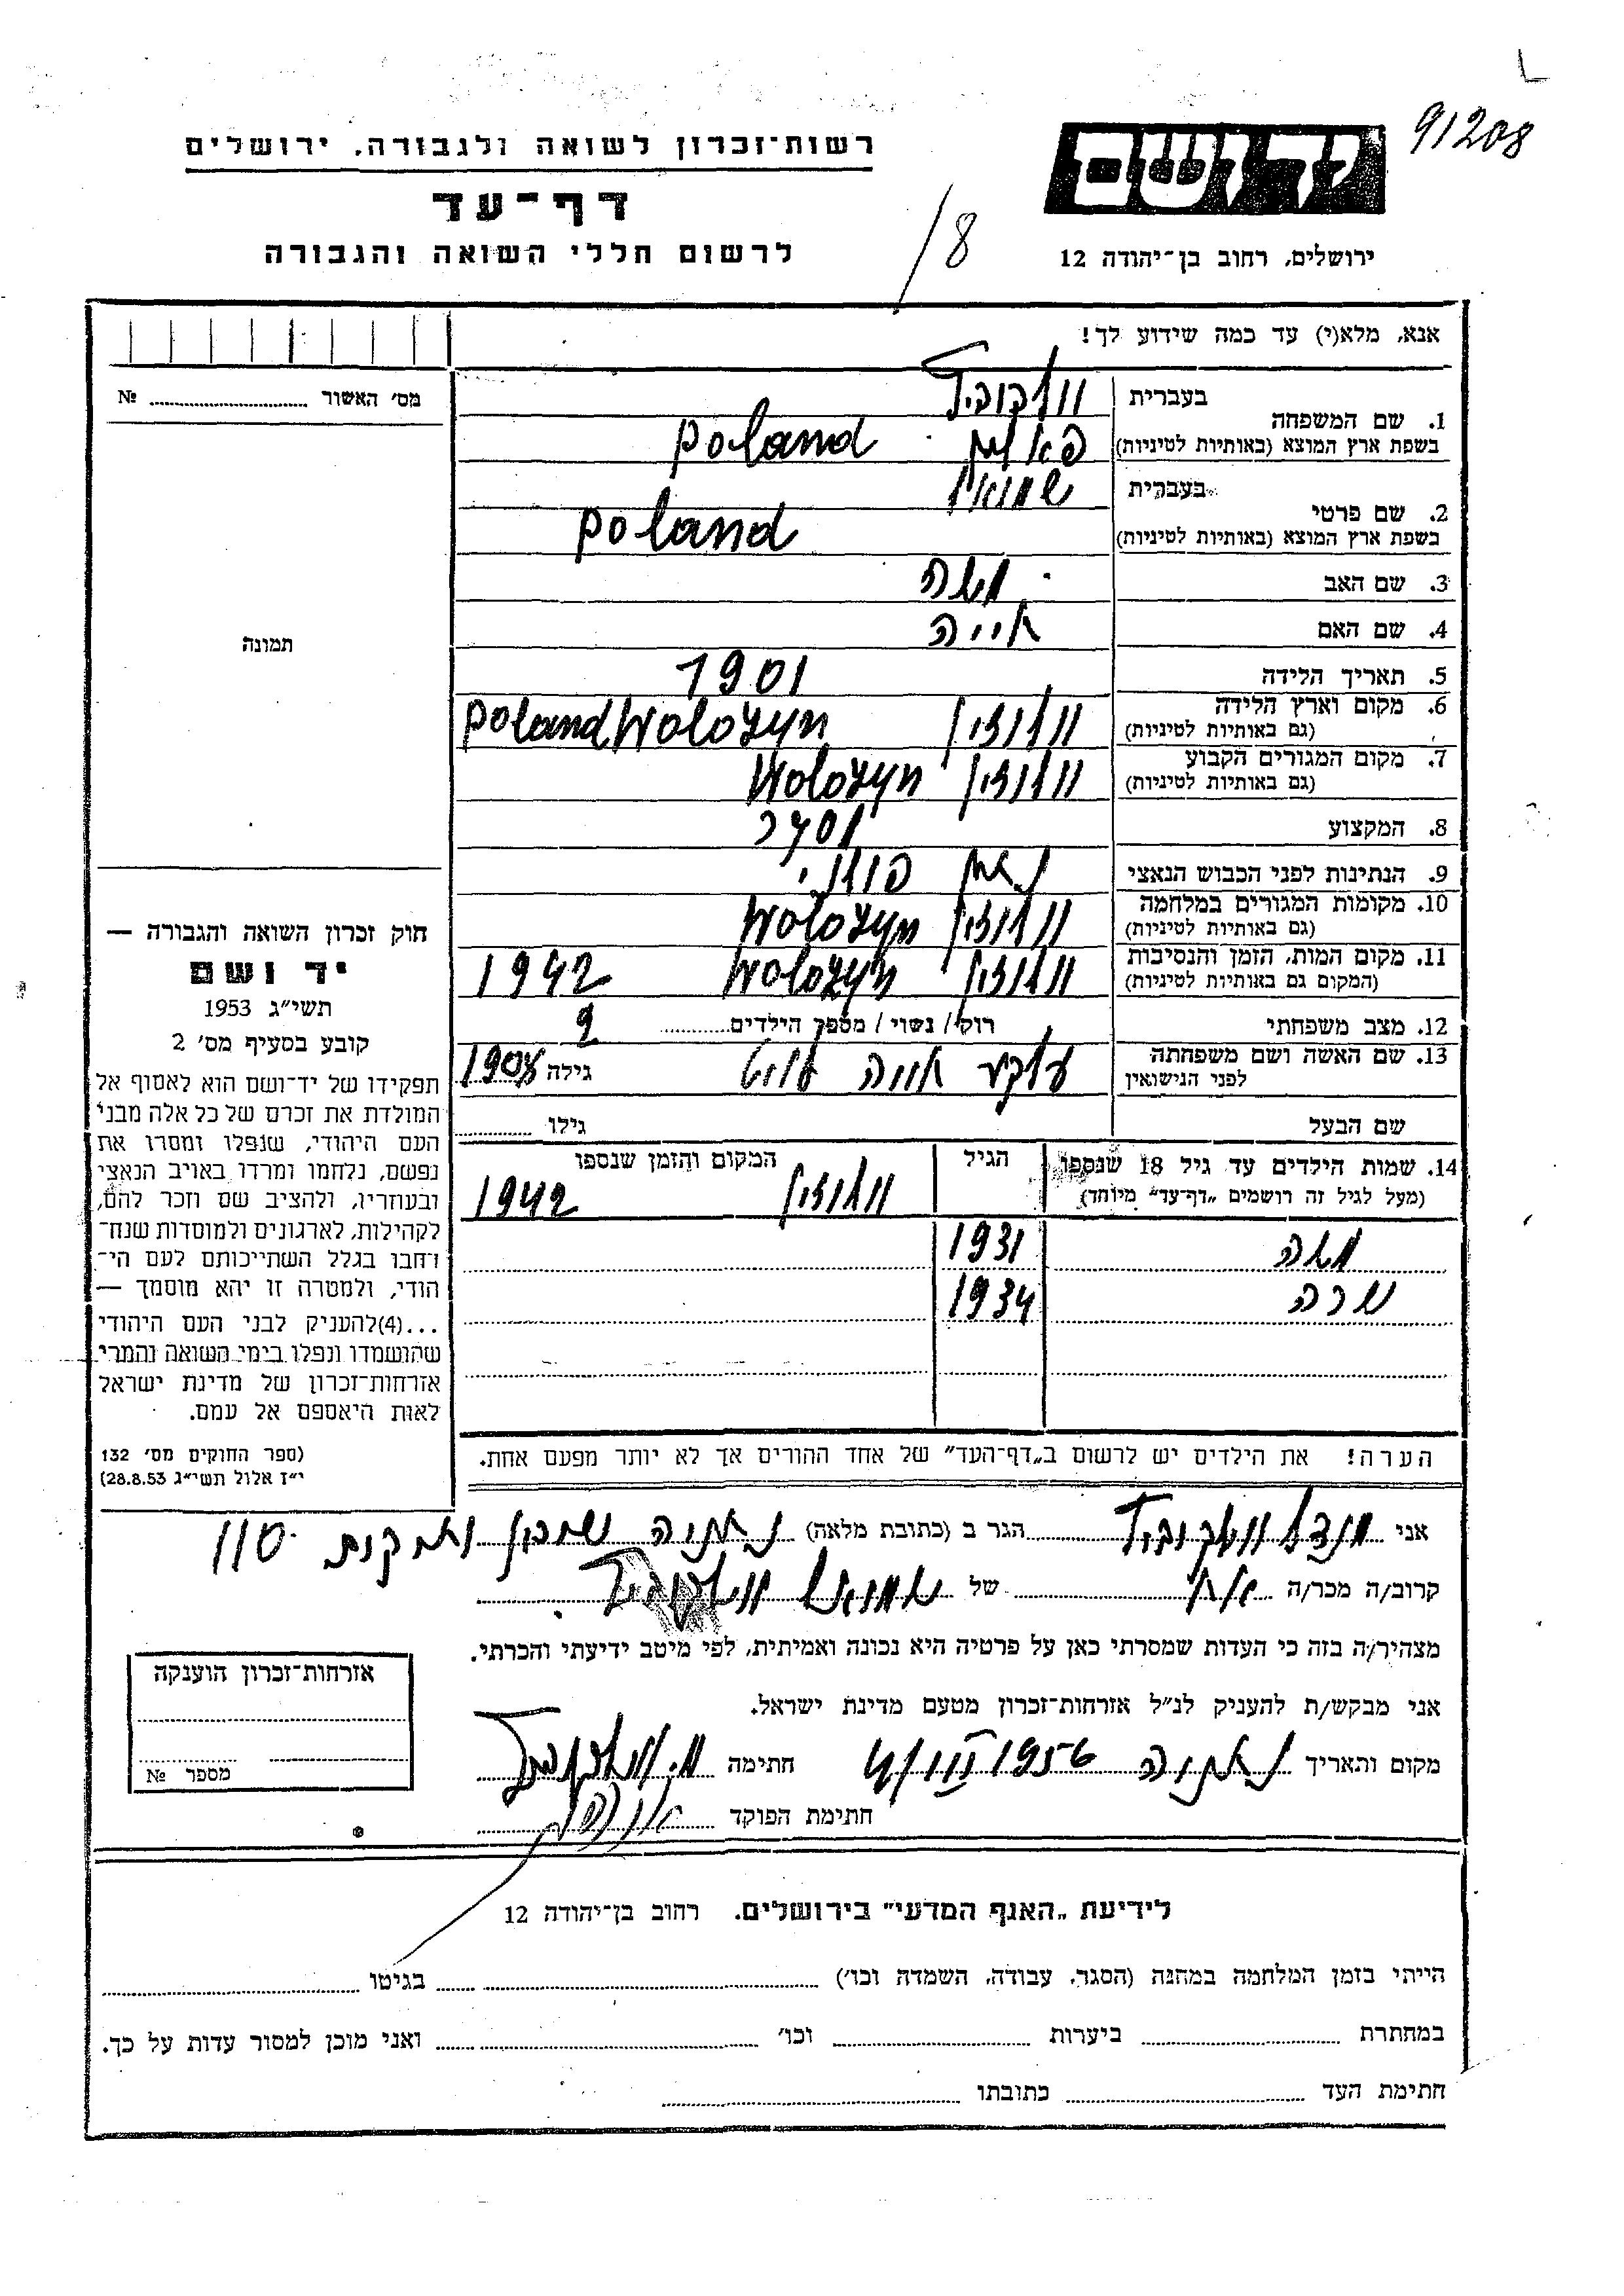 91208
רשות־זכרון לשואה ולגבורה, ירושלים
יד ושם
דף־עד
לרשום חללי השואה והגבורה
8/
ירושלים, רחוב בן־יהודה 12
אנא, מלא(י) עד כמה שידוע לך!
מס׳ האשור № 
1. שם המשפחה
בעברית
בשפת ארץ המוצא (באותיות לטיניות) poland
2. שם פרטי
בעברית שמואל
בשפת ארץ המוצא (באותיות לטיניות) poland
3. שם האב משה
4. שם האם
5. תאריך הלידה 1901
6. מקום וארץ הלידה
(גם באותיות לטיניות) וולוזין poland Wolozyn
7. מקום המגורים הקבוע
(גם באותיות לטיניות) וולוזין Wolozyn
8. המקצוע
9. הנתינות לפני הכבוש הנאצי
10. מקומות המגורים במלחמה
(גם באותיות לטיניות) וולוזין Wolozyn
11. מקום המות, הזמן והנסיבות
(המקום גם באותיות לטיניות) וולוזין Wolozyn 1942
12. מצב משפחתי רוק/ נשוי / מספר הילדים 2
13. שם האשה ושם משפחתה
לפני הנישואין גילה
שם הבעל גילו
14. שמות הילדים עד גיל 18 שנספו
(מעל לגיל זה רושמים „דף־עד” מיוחד)
הגיל
המקום והזמן שנספו
וולוזין 1942
משה 1931
שרה 1934
תמונה
חוק זכרון השואה והגבורה —
יד ושם
תשי״ג 1953
קובע בסעיף מס׳ 2
תפקידו של יד־ושם הוא לאסוף אל
המולדת את זכרם של כל אלה מבני
העם היהודי, שנפלו ומסרו את
נפשם, נלחמו ומרדו באויב הנאצי
ובעוזריו, ולהציב שם וזכר להם,
לקהילות, לארגונים ולמוסדות שנח־
רחבו בגלל השתייכותם לעם הי־
הודי, ולמטרה זו יהא מוסמך —
...(4)להעניק לבני העם היהודי
שהושמדו ונפלו בימי השואה והמרי
אזרחות־זכרון של מדינת ישראל
לאות היאספם אל עמם.
(ספר החוקים מס׳ 132
י״ז אלול תשי״ג 28.8.53)
הערה! את הילדים יש לרשום ב„דף־העד” של אחד ההורים אך לא יותר מפעם אחת.
אני הגר ב (כתובת מלאה) נתניה שכון ותקנת 110
קרוב/ה מכר/ה אח של שמואל
מצהיר/ה בזה כי העדות שמסרתי כאן על פרטיה היא נכונה ואמיתית, לפי מיטב ידיעתי והכרתי.
אני מבקש/ת להעניק לנ״ל אזרחות־זכרון מטעם מדינת ישראל.
מקום ותאריך נתניה 1956 חתימה
חתימת הפוקד
אזרחות־זכרון הוענקה
מספר №
לידיעת „האגף המדעי” בירושלים. רחוב בן־יהודה 12
הייתי בזמן המלחמה במחנה (הסגר, עבודה, השמדה וכו׳) בגיטו
במחתרת ביערות וכו׳ ואני מוכן למסור עדות על כך.
חתימת העד כתובתו